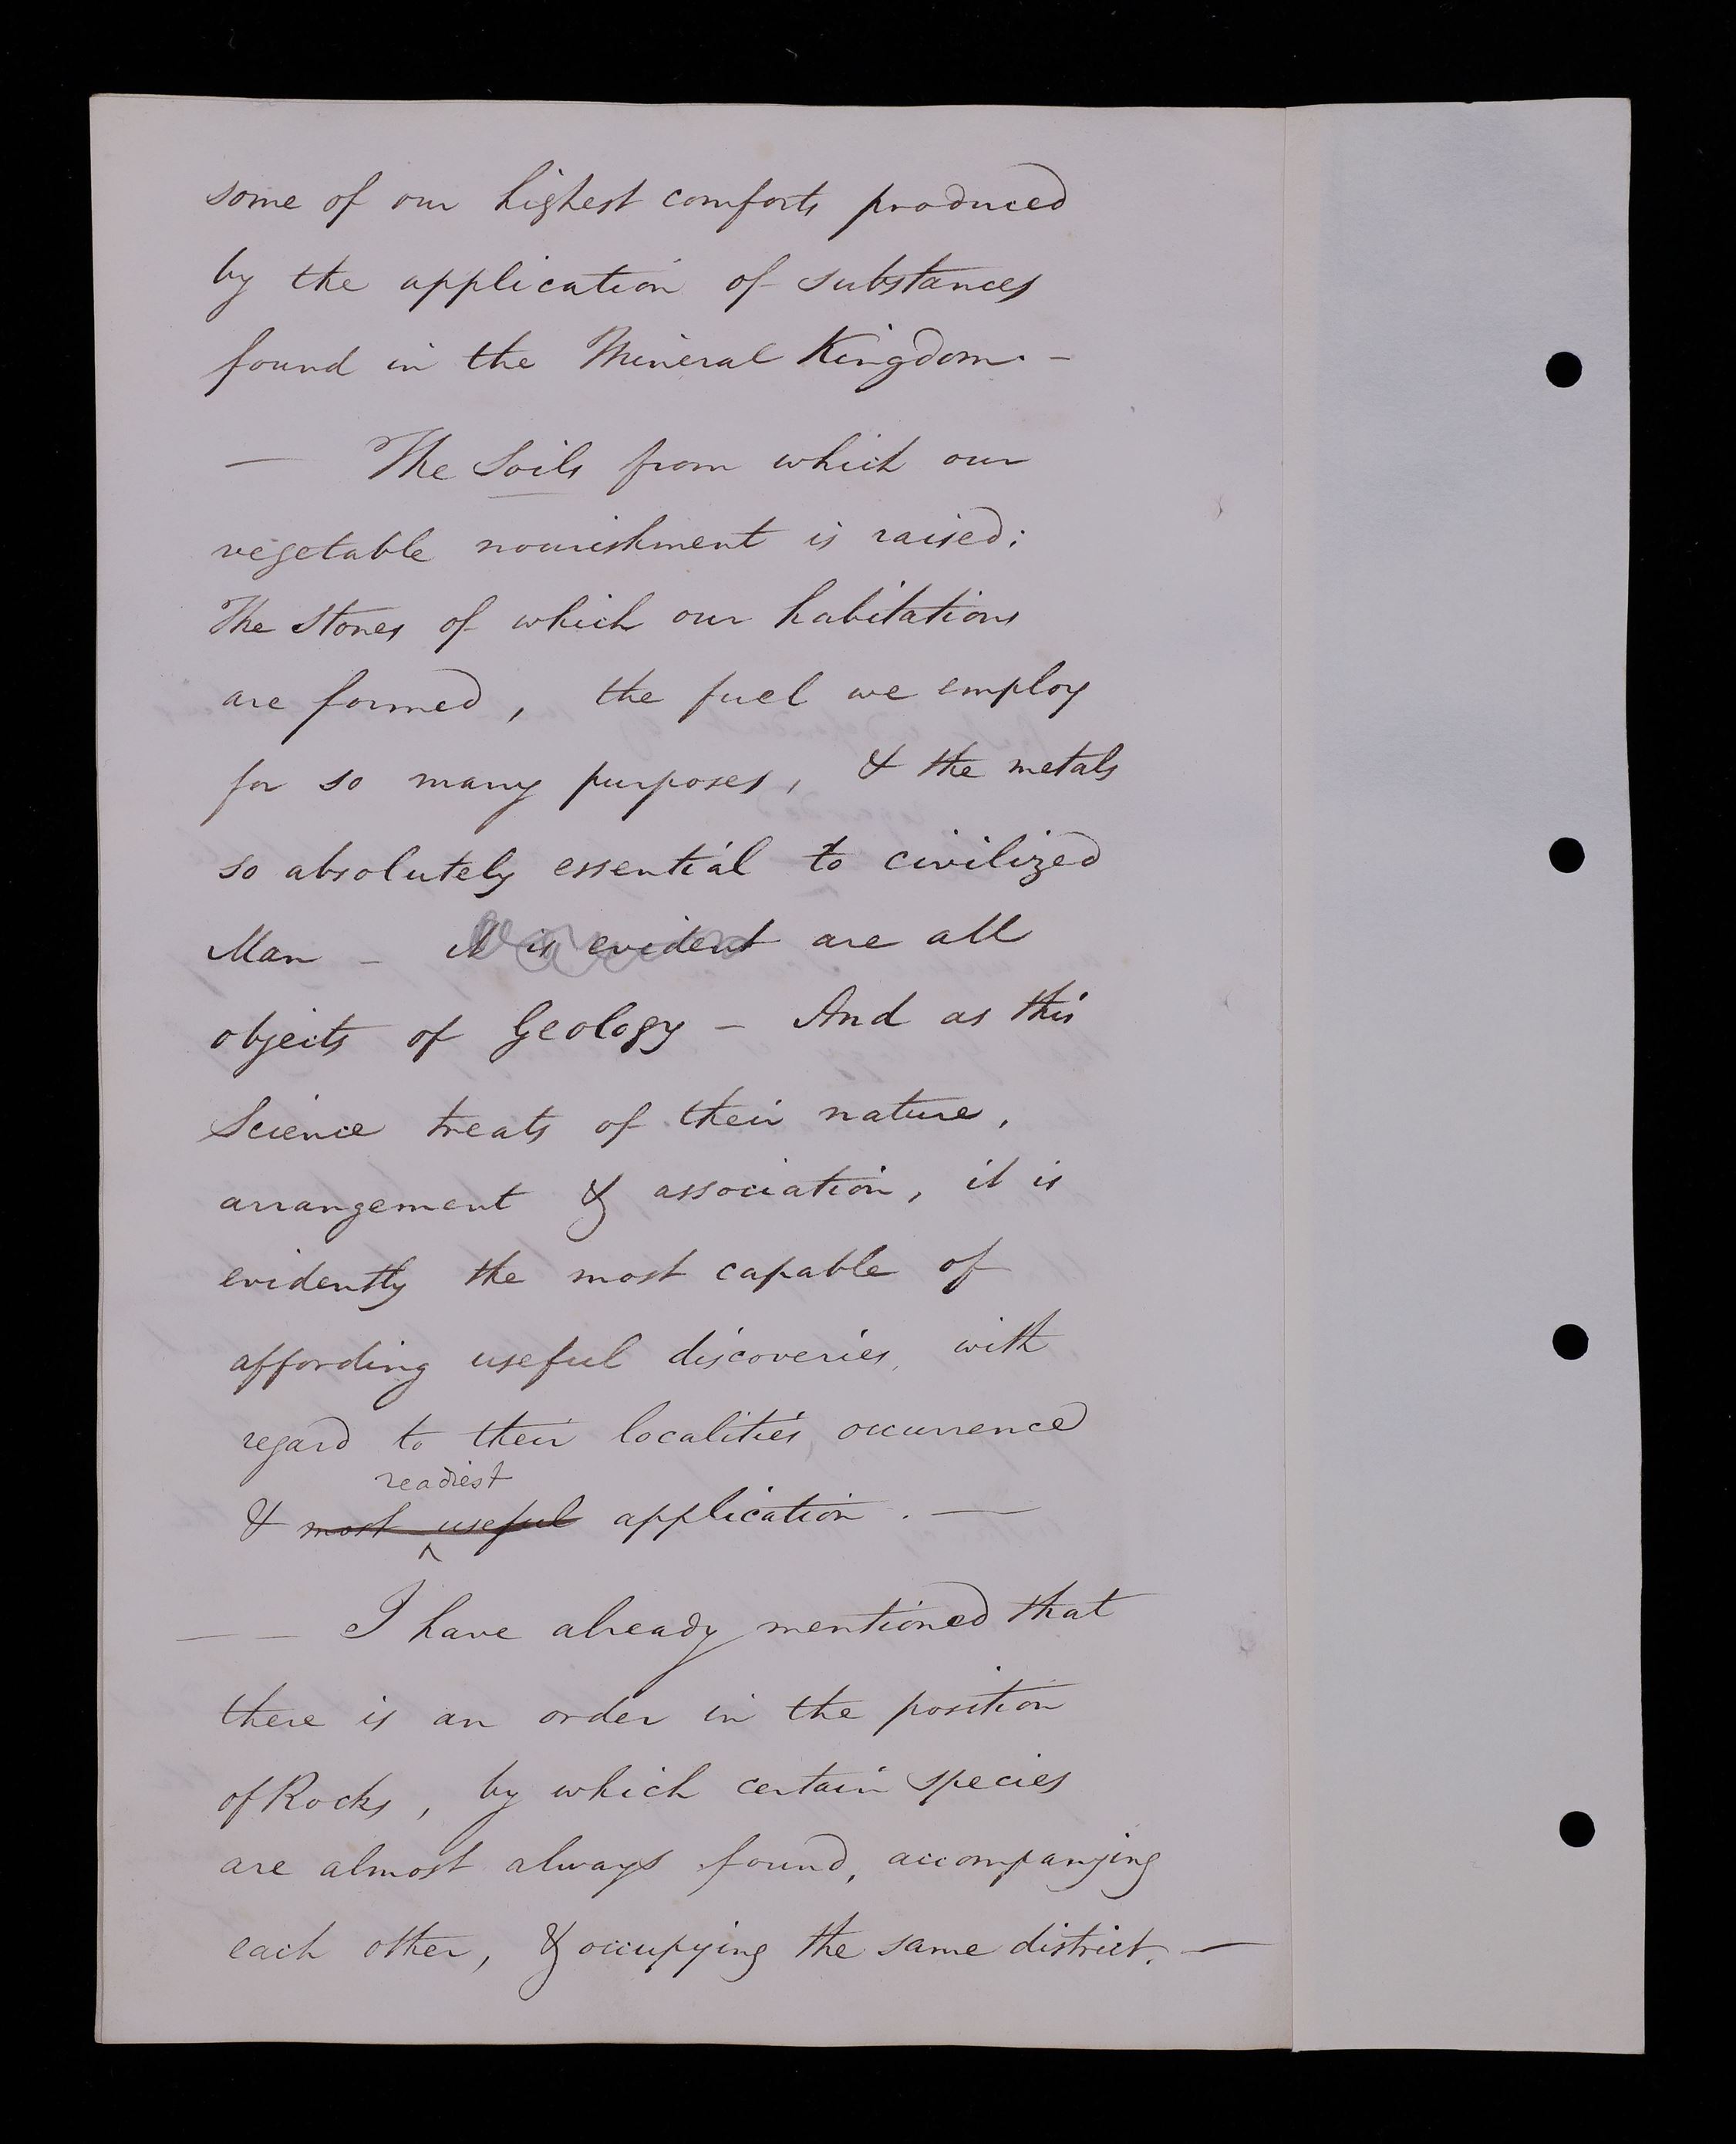 some of our highest comforts produced
by the application of substances
found in the Mineral Kingdom. -
— The Soils from which our
vegetable nourishment is raised;
The stones of which our habitations
are formed, the fuel we employ
for so many purposes, & the metals
so absolutely essential to civilized
Man - it is evident are all
objects of Geology - And as this
Science treats of their nature,
arrangement & association, it is
evidently the most capable of
affording useful discoveries, with
regard to their localities, occurrence
readiest
& most useful application. —
— — I have already mentioned that
there is an order in the position
of Rocks, by which certain species
are almost always found, accompanying
each other, & occupying the same district. —